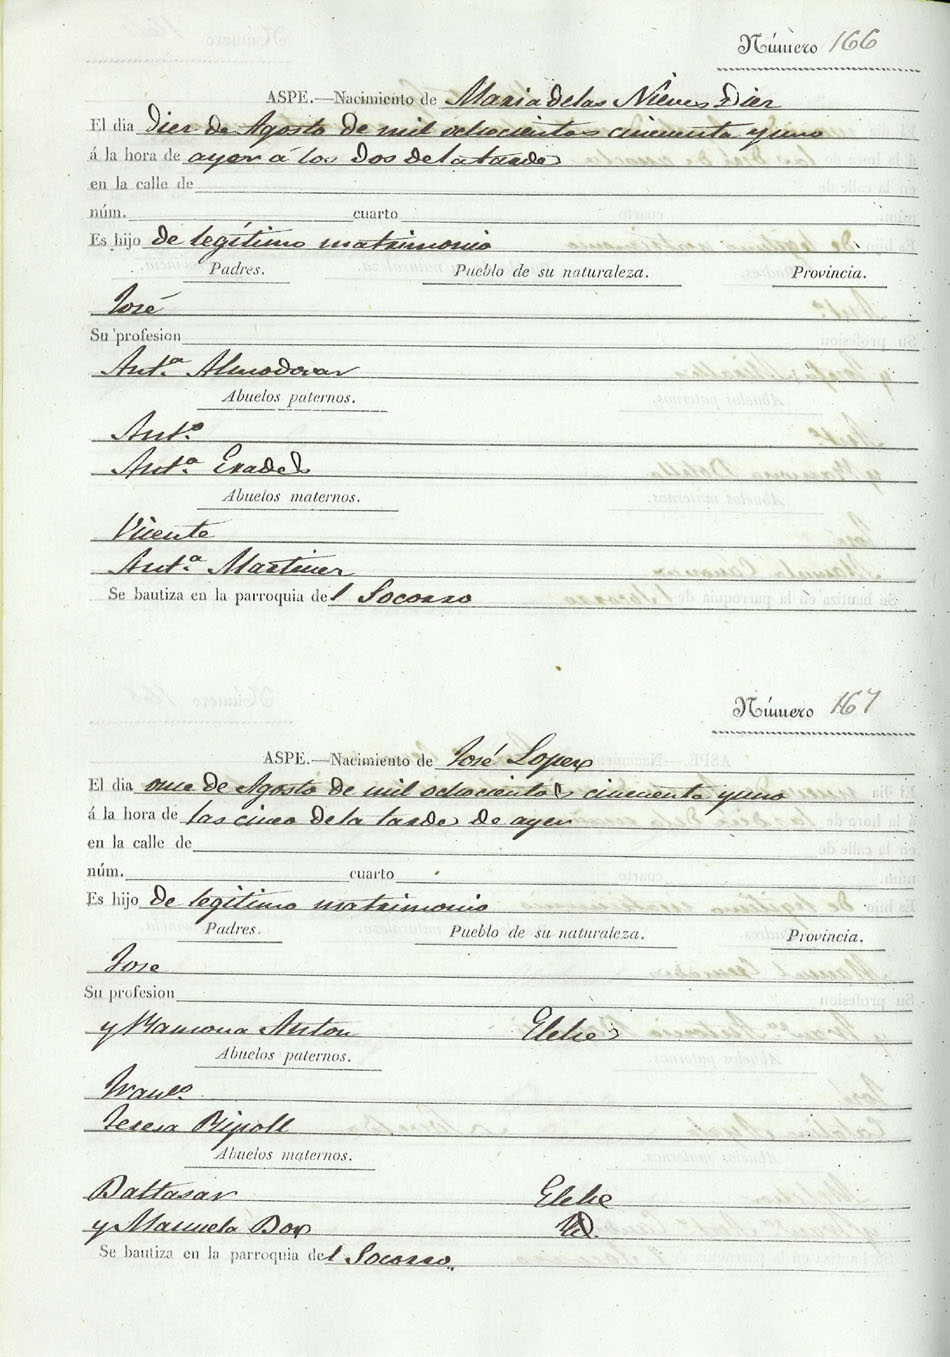 Número 166
ASPE.—Nacimiento de Maria de las Nieves Dier
El dia Dier de Agosto de mil ochocientos cincuenta y uno
á la hora de ayer á las dos de la tarde
en la calle de
núm. cuarto
Es hijo de legítimo matrimonio
Padres. Pueblo de su naturaleza. Provincia.
José
Su profesion
Ant.ª Almodovar
Abuelos paternos.
Ant.º
Ant.ª
Abuelos maternos.
Vicente
Ant.ª Martiner
Se bautiza en la parroquia del Socorro
Número 167
ASPE.—Nacimiento de José Lopez
El dia once de Agosto de mil ochocientos cincuenta y uno
á la hora de las cinco de la tarde de ayer
en la calle de
núm. cuarto
Es hijo de legítimo matrimonio
Padres. Pueblo de su naturaleza. Provincia.
Jose
Su profesion
y Ramona Anton Elche
Abuelos paternos.
Fran.co
Teresa Ripoll
Abuelos maternos.
Baltasar Elche
y Manuela Box Id.
Se bautiza en la parroquia del Socorro.